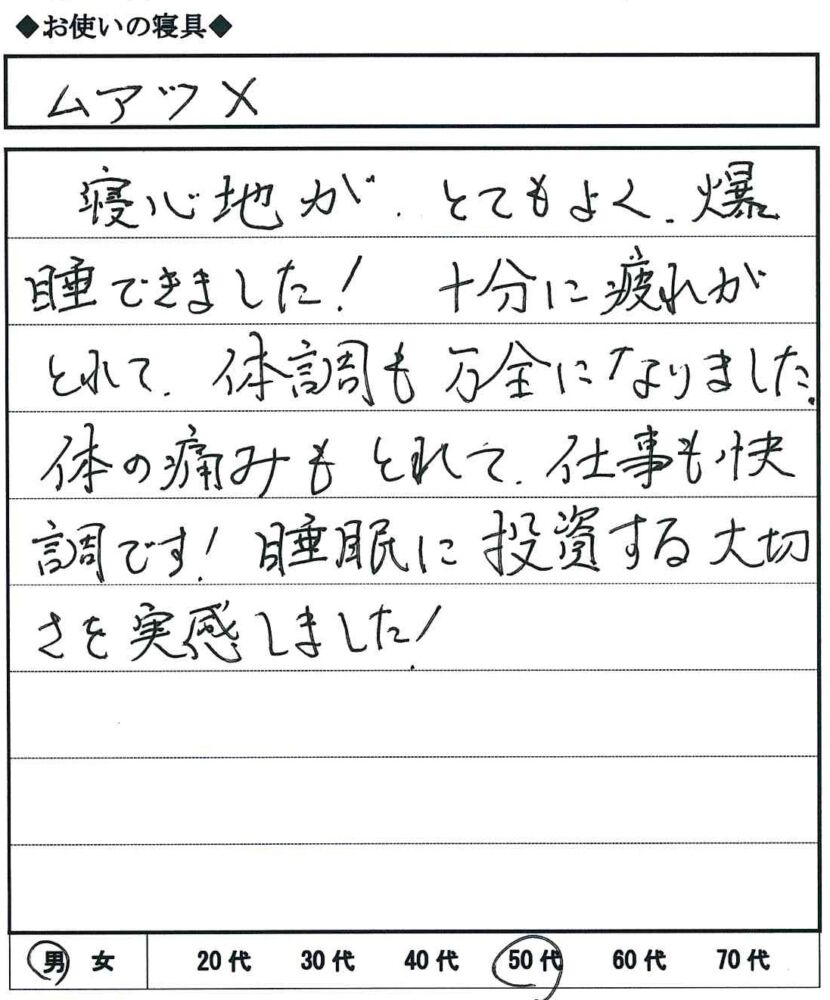 ◆お使いの寝具◆
ムアツX
寝心地が、とてもよく、爆
睡できました! 十分に疲れが
とれて、体調も万全になりました。
体の痛みもとれて、仕事も快
調です! 睡眠に投資する大切
さを実感しました!
男 女 20代 30代 40代 50代 60代 70代